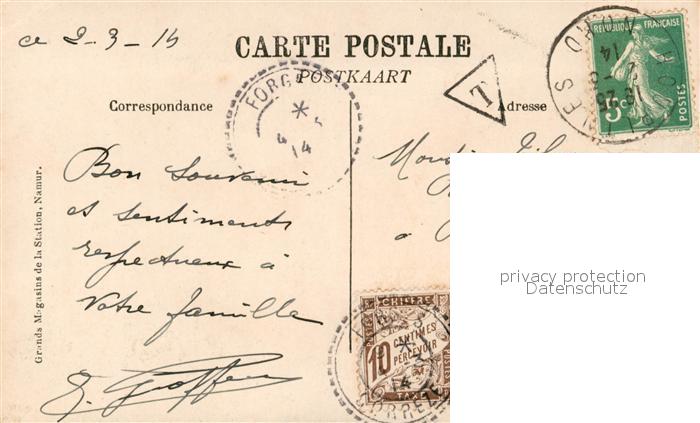 ce 2-3-14
CARTE POSTALE
POSTKAART
Correspondance
Adresse
T
FORGES
4 14
REPUBLIQUE FRANÇAISE
5c
POSTES
14
Bon souvenir
et sentiments
respectueux à
votre famille
Monsieur
à
Grands Magasins de la Station, Namur.
CHIFFRE
10 CENTIMES
A PERCEVOIR
TAXE
CORREZE
14
privacy protection
Datenschutz